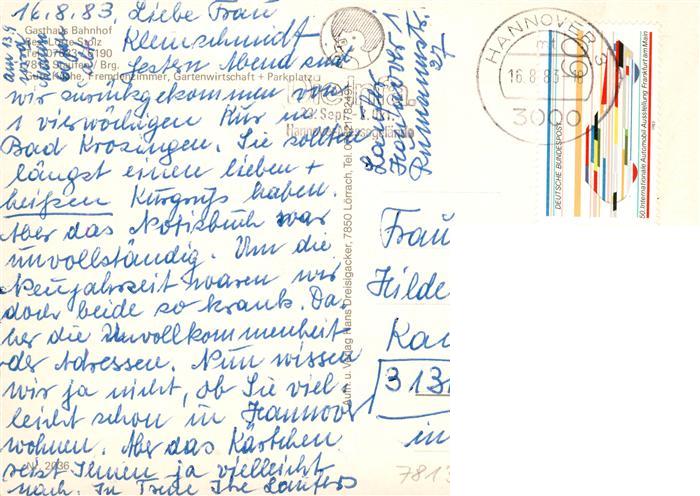 16.8.83. Liebe Frau
Kleinschmidt
Gasthaus Bahnhof
Bes. Lotte Stolz
Gestern Abend sind
Gute Küche, Fremdenzimmer, Gartenwirtschaft + Parkplatz
wir zurückgekommen von
1 vierwöchigen Kur na
Bad Krozingen. Sie sollten
längst einen lieben +
heißen Kurgruß haben.
Aber das Notizbuch war
unvollständig. Um die
Neujahrszeit waren wir
doch beide so krank. Da
her die Unvollkommenheit
der Adressen. Nun wissen
wir ja nicht, ob Sie viel
leicht schon in Hannover
wohnen. Aber das Kärtchen
reist Ihnen ja vielleicht
nach. In Treue Ihre Lauters
Nr. 2036
am 13.9
Hannover 1
Rumannstr.
27
Aufn. u. Verlag Hans Dreisigacker, 7850 Lörrach, Tel.
HANNOVER 3
mt
16.8.83-18
3000
DEUTSCHE BUNDESPOST
50. Internationale Automobil-Ausstellung Frankfurt am Main
Frau
Hilde
Ka
313
in
7813